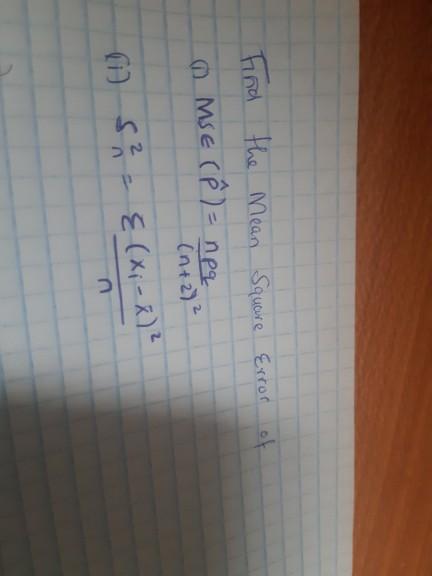 Find the Mean Square Error of
(i) MSE (p̂) = npq / (n+2)²
(i) S²n = Σ (xi - x̄)² / n